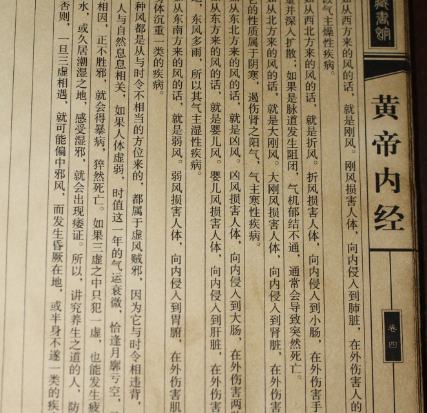 藏书馆
黄帝内经
卷四
从西方来的风的话，就是刚风。刚风损害人体，向内侵入到肺脏，在外伤害
气主燥性疾病。
从西北方来的风的话，就是折风。折风损害人体，向内侵入到小肠，在外伤害手
并深入扩散；如果是脉道发生阻闭，气机郁结不通，通常会导致突然死亡。
从北方来的风的话，就是大刚风。大刚风损害人体，向内侵入到肾脏，在外伤
的性质属于阴寒，遏伤肾之阳气，气主寒性疾病。
从东北方来的风的话，就是凶风。凶风损害人体，向内侵入到大肠，在外伤害两
从东方来的风的话，就是婴儿风。婴儿风损害人体，向内侵入到肝脏，在外伤害
，东风多雨，所以其气主湿性疾病。
从东南方来的风的话，就是弱风。弱风损害人体，向内侵入到胃腑，在外伤害肌
体沉重一类的疾病。
种风都是从与时令不相当的方位来的，都属于虚风贼邪，因为它与时令相违背，
人与自然息息相关，如果人体虚弱，时值这一年的气运衰微，恰逢月廓亏空，
相因，正不胜邪，就会得暴病，猝然死亡。如果三虚之中只犯一虚，也能发生疲
水，或久居潮湿之地，感受湿邪，就会出现痿证。所以，讲究养生之道的人，防
否则，一旦三虚相遇，就可能偏中邪风，而发生昏厥在地，或半身不遂一类的疾